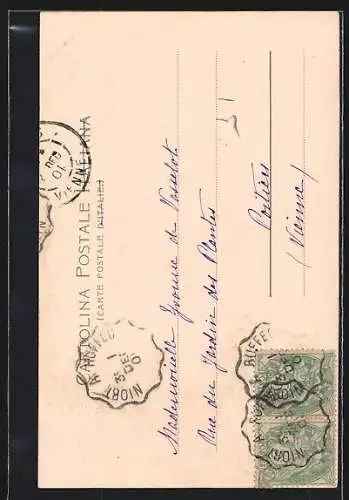 CARTOLINA POSTALE ITALIANA
(CARTE POSTALE D'ITALIE)
Mademoiselle Yvonne de Vasselot
Rue du Jardin des Plantes
Poitiers
(Vienne)
NIORT A RUFFEC
NIORT A RUFFEC
NIORT A RUFFEC
VIENNE